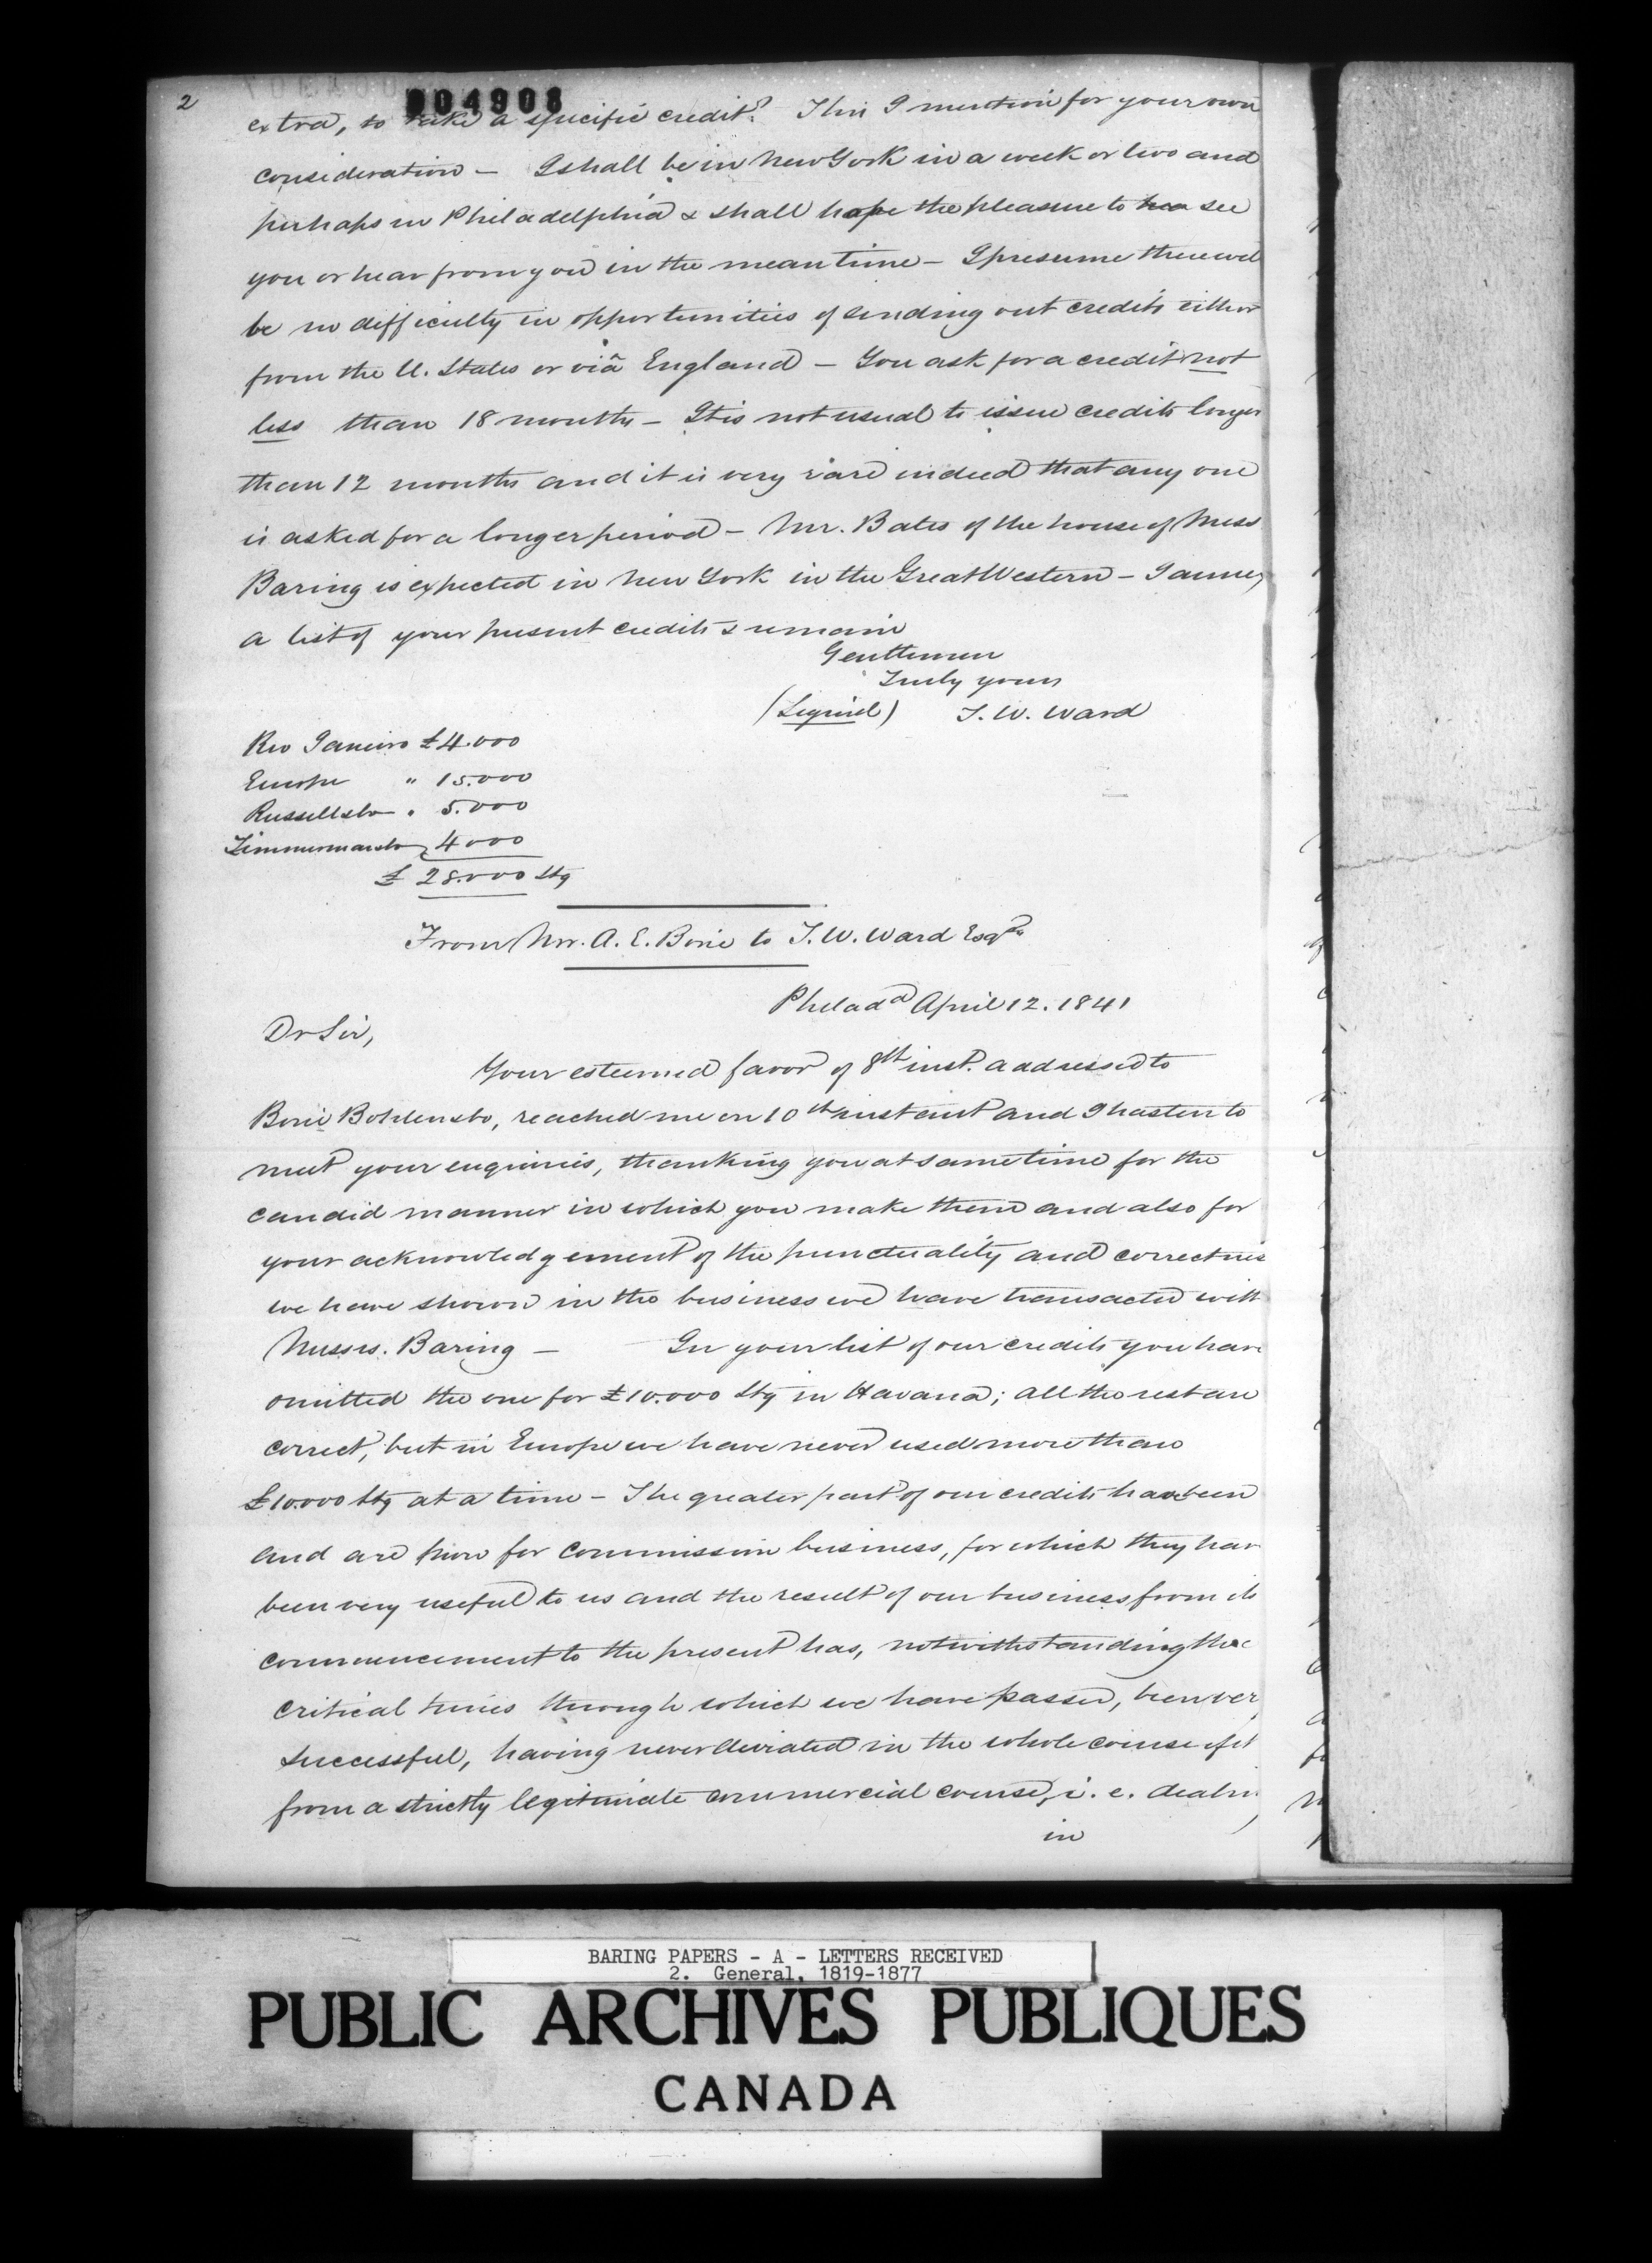 2
004908
extra, to take a specific credit? This I mention for your own
consideration – I shall be in New York in a week or two and
perhaps in Philadelphia & shall hope the pleasure to hea see
you or hear from you in the mean time – I presume there will
be no difficulty in opportunities of sending out credits either
from the U. States or viâ England – You ask for a credit not
less than 18 months – It is not usual to issue credits longer
than 12 months and it is very rare indeed that any one
is asked for a longer period – Mr. Bates of the house of Mess
Baring is expected in New York in the Great Western – I annex
a list of your present credits & remain
Gentlemen
Truly yours
(Signed) T. W. Ward
Rio Janeiro £4.000
Europe " 15.000
Russell & Co " 5.000
Zimmerman & Co 4000
£ 28.000 Stg
From Mr. A. E. Borie to T. W. Ward Esqre
Philada April 12. 1841
Dr Sir,
Your esteemed favor of 8th inst. addressed to
Borie Bohlen & Co, reached me on 10th instant and I hasten to
meet your enquiries, thanking you at same time for the
candid manner in which you make them and also for
your acknowledgement of the punctuality and correctness
we have shown in the business we have transacted with
Messrs. Baring – In your list of our credits you have
omitted the one for £10.000 Stg in Havana; all the rest are
correct, but in Europe we have never used more than
£10.000 Stg at a time – The greater part of our credits have been
and are now for commission business, for which they hav
been very useful to us and the result of our business from its
commencement to the present has, notwithstanding the
critical times through which we have passed, been ver
successful, having never deviated in the whole course of it
from a strictly legitimate commercial course, i. e. dealin
in
BARING PAPERS - A - LETTERS RECEIVED
2. General, 1819-1877
PUBLIC ARCHIVES PUBLIQUES
CANADA